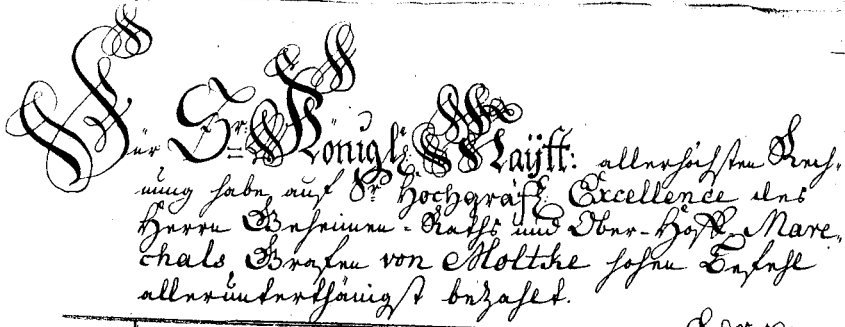 Für Sr: Königl: Maÿtt: allerhöchsten Rech-
nung habe auf Sr Hochgräfl: Excellence des
Herrn Geheimen-Raths und Ober-Hoff-Mare-
chals Grafen von Moltcke hohen Befehl
allerunterthänigst bezahlt.